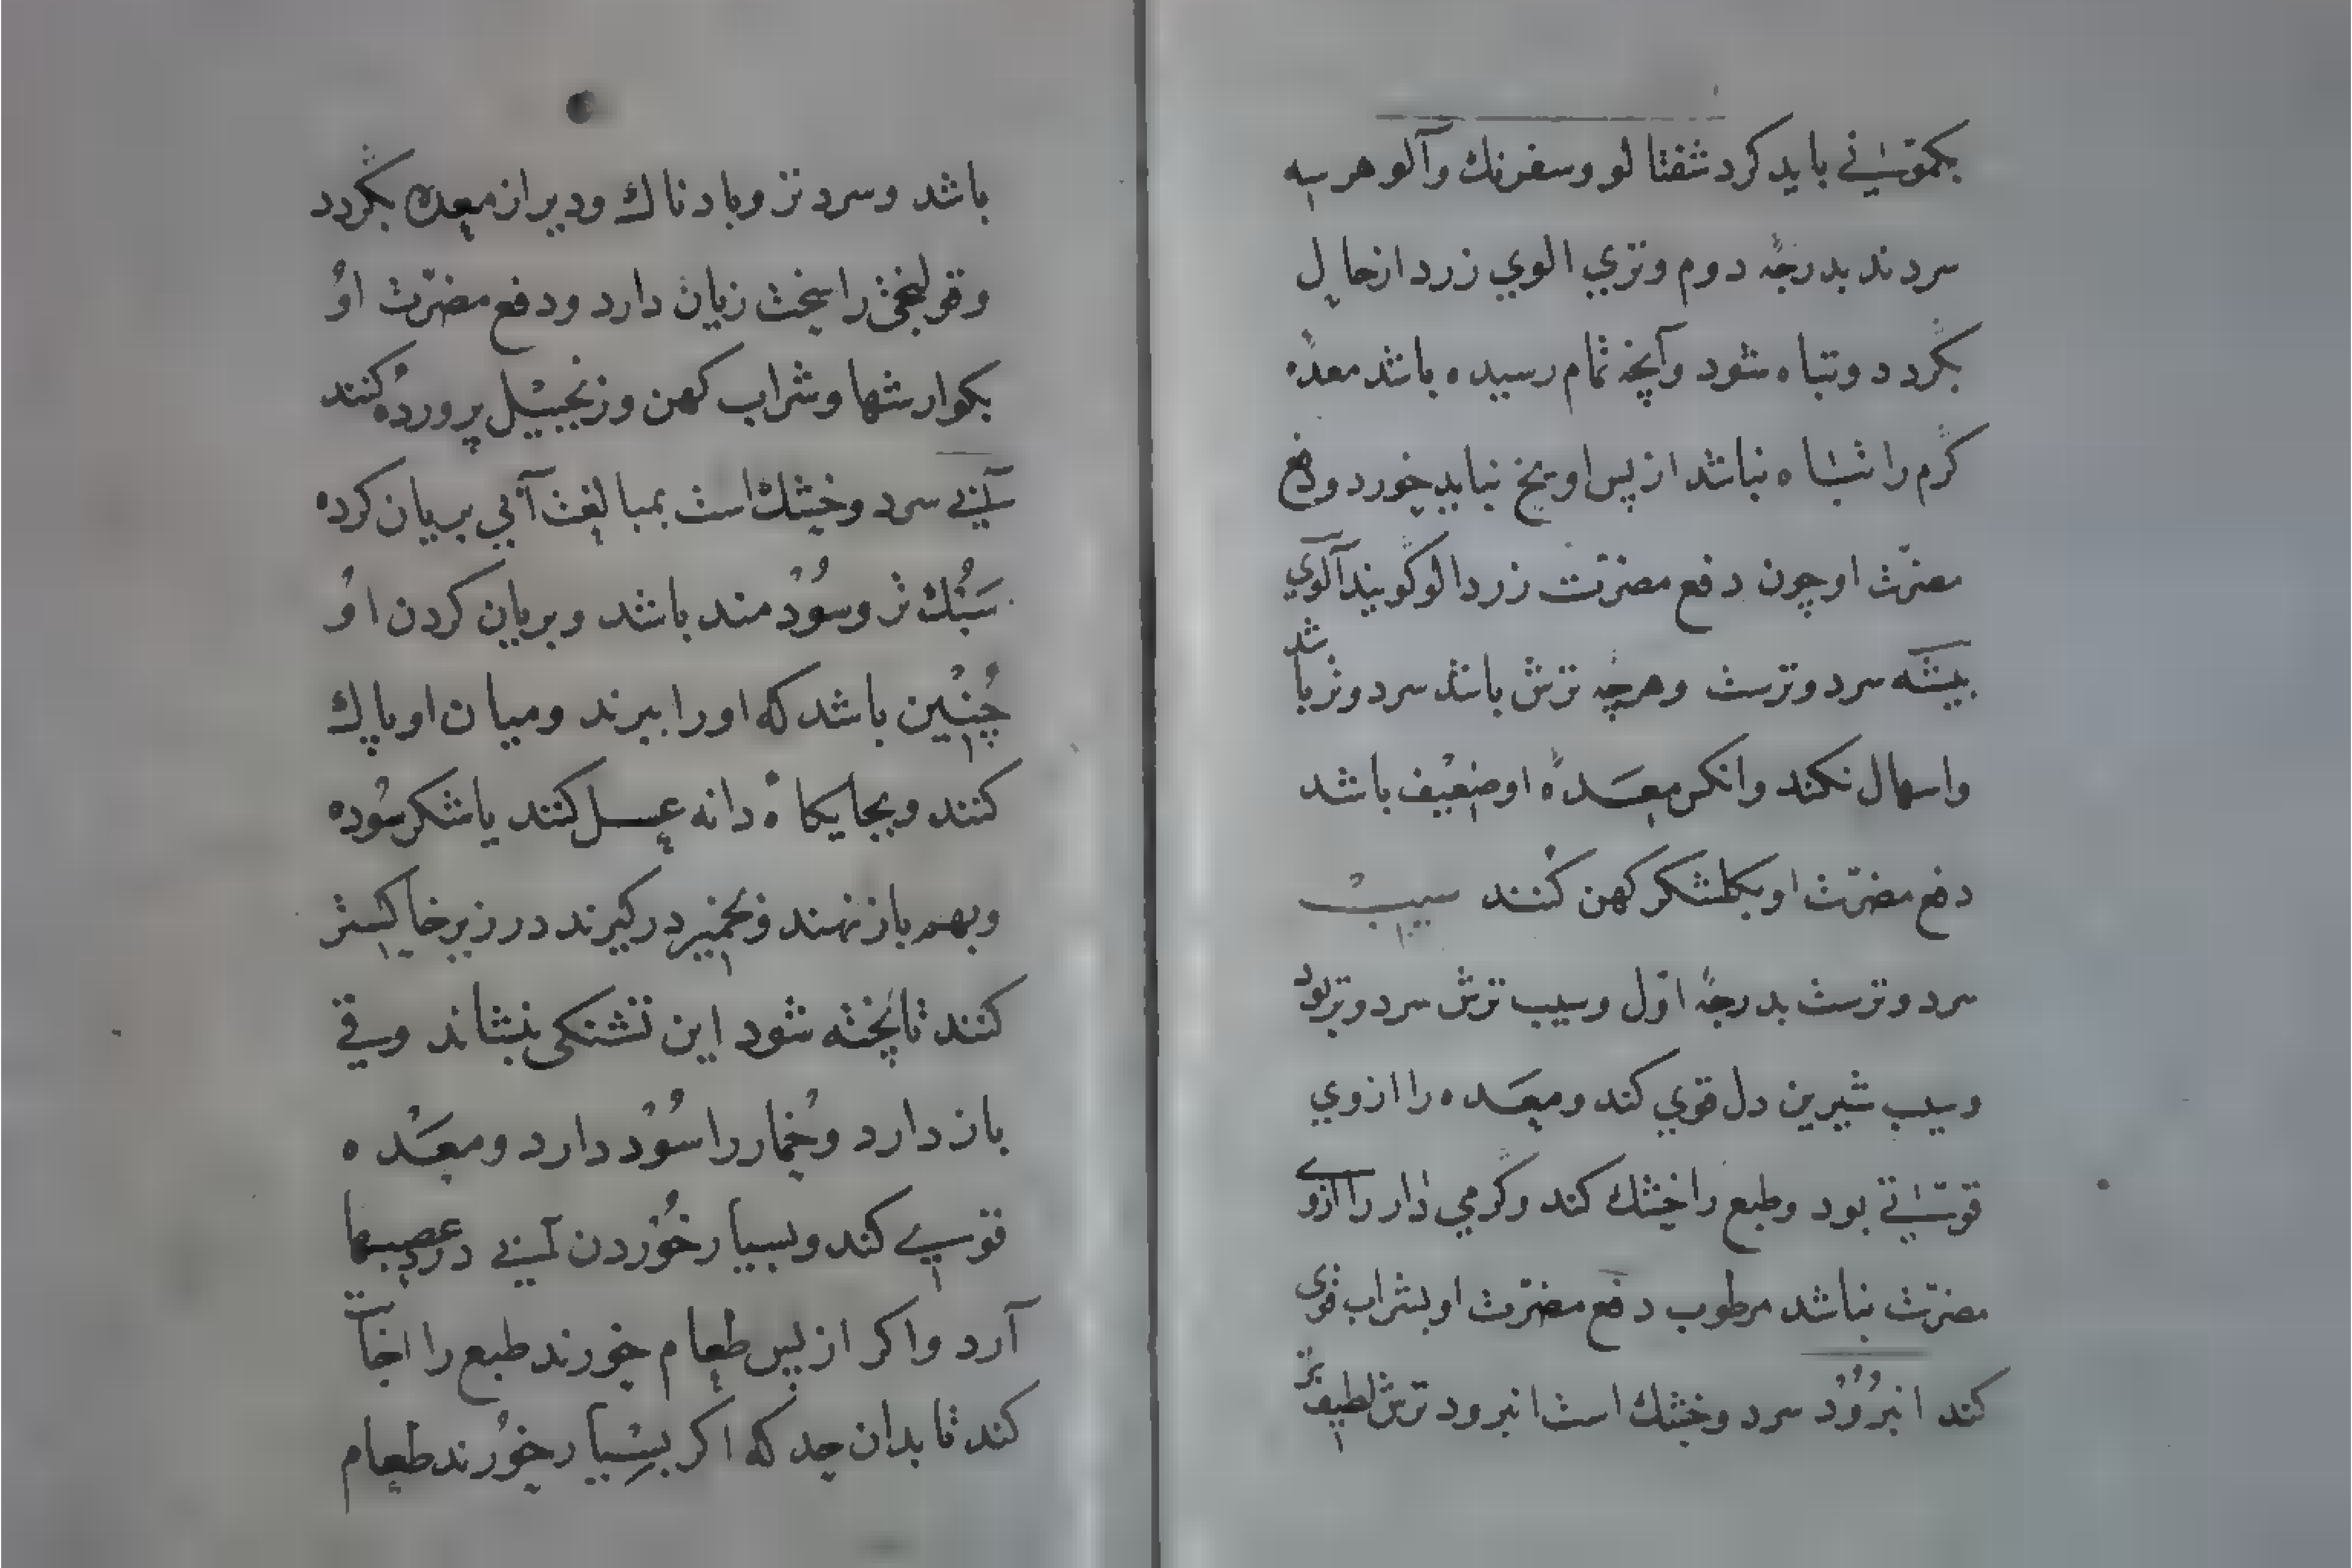 بکمونی باید کرد شفتالو و سفرنك وآلو هر سه
سردند بدرجه دوم وتری الوی زرد از حال
بکردد وتباه شود وآنچه تمام رسیده باشد معده
کرم را تباه نباشد از پس او یخ نباید خورد ودفع
مضرّت او چون دفع مضرّت زردالو کویند آلوی
بیشه سرد وترست وهرچه ترش باشد سرد وتر باشد
واسهال نکند وانکر معده او ضعیف باشد
دفع مضرّت او بکلشکر کهن کنند سیب
سرد وترست بدرجه اوّل وسیب ترش سرد وتر بود
وسیب شیرین دل قوی کند ومعده را از وی
قوّتی بود وطبع را خشك کند وکرمی دار را ازوی
مضرّت نباشد مرطوب دفع مضرّت او بشراب قوی
کند انبرُود سرد وخشك است انبرود ترش لطیف تر
باشد وسردتر وبادناك ودیر از معده بکردد
وقولنجی را سخت زیان دارد ودفع مضرّت اوُ
بکوارشها وشراب کهن وزنجبیل پرورده کنند
آبی سرد وخشك است بمبالغت آبی بریان کرده
سَبُك تر وسُوْدمند باشد وبریان کردن اوُ
چُنْین باشد که او را ببرند ومیان او پاك
کنند وبجایکاه دانه عسل کنند یا شکر سُوده
وبهم باز نهند وبخمیر درکیرند در زیر خاکستر
کنند تا پخته شود این تشنکی بنشاند وقی
باز دارد وخُمار را سُوْد دارد ومعَدْه
قوی کند وبسیار خُوْردن آبی درد عصبها
آرد واکر از پس طعام خورند طبع را اجابت
کند تا بدان حد که اکر بسْیار خوُرند طعام